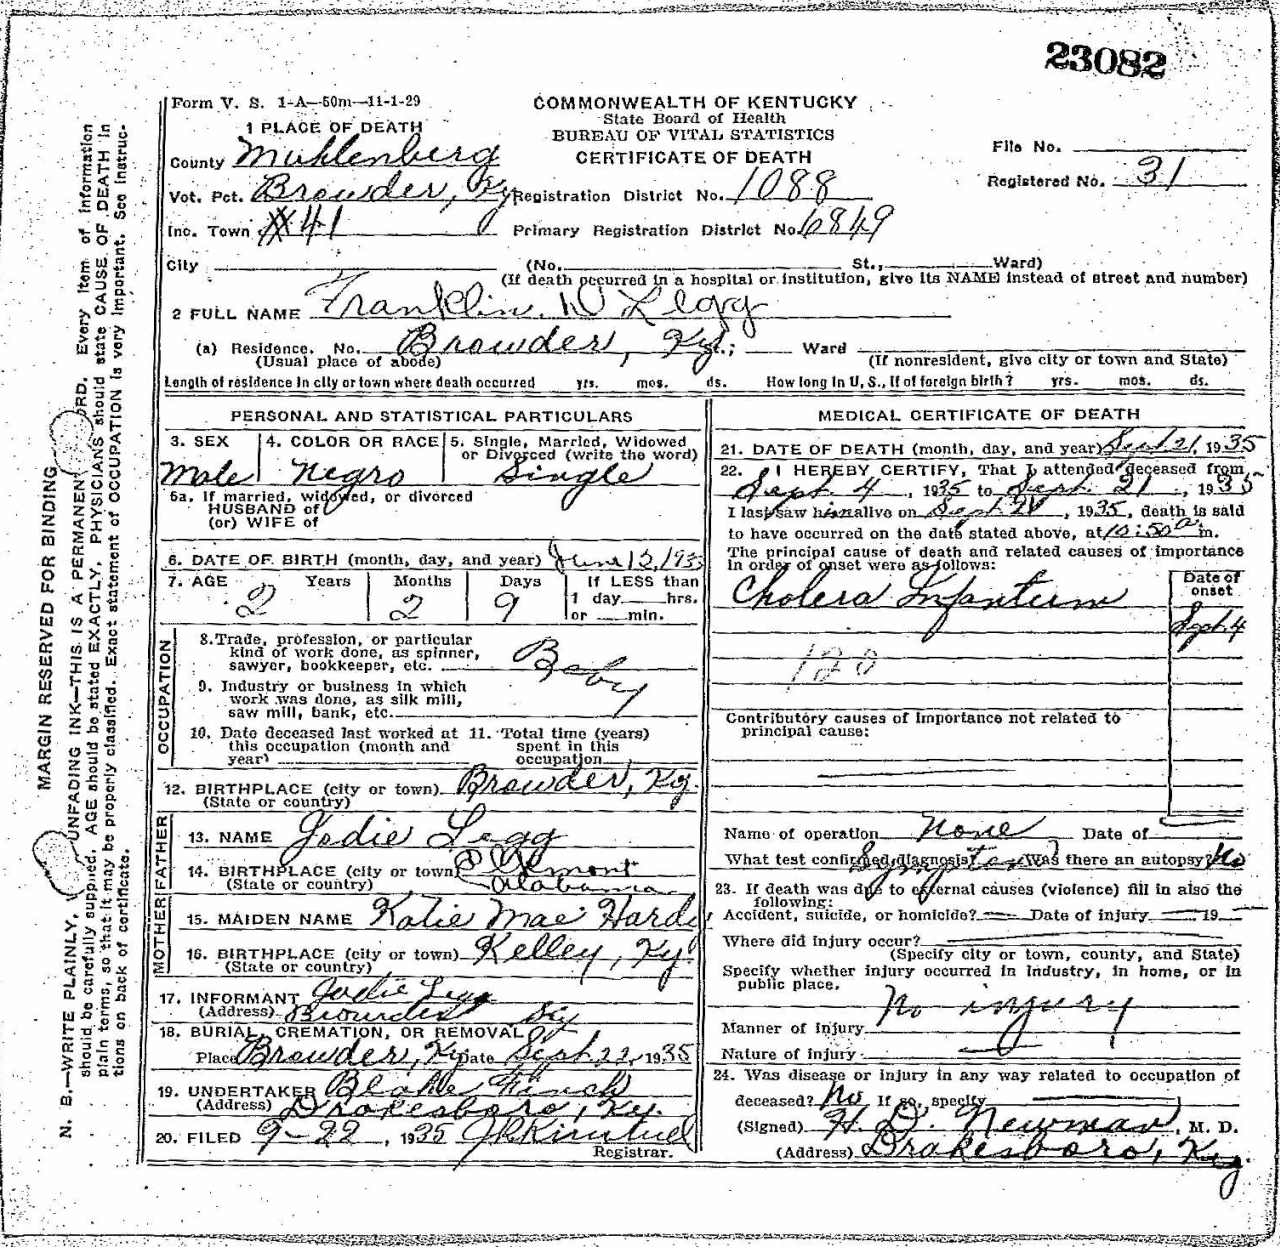 23082
Form V. S. 1-A—50m—11-1-29
COMMONWEALTH OF KENTUCKY
State Board of Health
BUREAU OF VITAL STATISTICS
CERTIFICATE OF DEATH
1 PLACE OF DEATH
County Muhlenberg
File No.
Vot. Pct. Browder, Ky Registration District No. 1088
Registered No. 31
Inc. Town #41 Primary Registration District No. 6849
City (No. St., Ward)
(If death occurred in a hospital or institution, give its NAME instead of street and number)
2 FULL NAME Franklin. D Legg
(a) Residence. No. Browder, Ky St.; Ward
(Usual place of abode) (If nonresident, give city or town and State)
Length of residence in city or town where death occurred yrs. mos. ds. How long in U, S., if of foreign birth? yrs. mos. ds.
PERSONAL AND STATISTICAL PARTICULARS
3. SEX 4. COLOR OR RACE 5. Single, Married, Widowed
or Divorced (write the word)
Male Negro Single
5a. If married, widowed, or divorced
HUSBAND of
(or) WIFE of
6. DATE OF BIRTH (month, day, and year) June 12, 193
7. AGE Years Months Days If LESS than
1 day hrs.
or min.
2 2 9
OCCUPATION
8. Trade, profession, or particular
kind of work done, as spinner,
sawyer, bookkeeper, etc. Baby
9. Industry or business in which
work was done, as silk mill,
saw mill, bank, etc.
10. Date deceased last worked at 11. Total time (years)
this occupation (month and spent in this
year) occupation
12. BIRTHPLACE (city or town) Browder, Ky.
(State or country)
FATHER
13. NAME Jodie Legg
14. BIRTHPLACE (city or town)
(State or country) Alabama
MOTHER
15. MAIDEN NAME Katie Mae Hardy
16. BIRTHPLACE (city or town) Kelley, Ky.
(State or country)
17. INFORMANT Jodie Legg
(Address) Browder Ky
18. BURIAL, CREMATION, OR REMOVAL
Place Browder, Ky Date Sept. 22, 1935
19. UNDERTAKER Blake Finch
(Address) Drakesboro, Ky.
20. FILED 9-22, 1935
Registrar.
MEDICAL CERTIFICATE OF DEATH
21. DATE OF DEATH (month, day, and year) Sept 21, 1935
22. I HEREBY CERTIFY, That I attended deceased from
Sept. 4, 1935 to Sept. 21, 1935
I last saw him alive on Sept. 21, 1935, death is said
to have occurred on the date stated above, at 10:50 a m.
The principal cause of death and related causes of importance
in order of onset were as follows:
Date of
onset
Cholera Infantum
Sept. 4
120
Contributory causes of importance not related to
principal cause:
Name of operation None Date of
What test confirmed diagnosis? Symptom Was there an autopsy? No
23. If death was due to external causes (violence) fill in also the
following:
Accident, suicide, or homicide? Date of injury 19
Where did injury occur?
(Specify city or town, county, and State)
Specify whether injury occurred in industry, in home, or in
public place.
No injury
Manner of injury
Nature of injury
24. Was disease or injury in any way related to occupation of
deceased? No If so, specify
(Signed) H. D. Newman, M. D.
(Address) Drakesboro, Ky.
MARGIN RESERVED FOR BINDING
N. B.—WRITE PLAINLY, UNFADING INK—THIS IS A PERMANENT RECORD. Every item of information
should be carefully supplied. AGE should be stated EXACTLY, PHYSICIANS should state CAUSE OF DEATH in
plain terms, so that it may be properly classified. Exact statement of OCCUPATION is very important. See instruc-
tions on back of certificate.